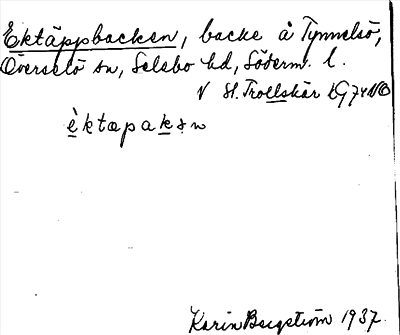 Ektäppbacken, backe å Tynnelsö,
Överselö sn, Selebo hd, Söderm. l.
V St. Trollskär
èktæpaksn
Karin Bergström 1937.